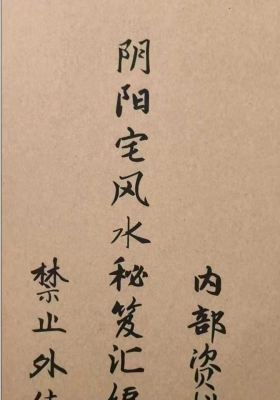 内部资
阴阳宅风水秘笈汇编
禁止外